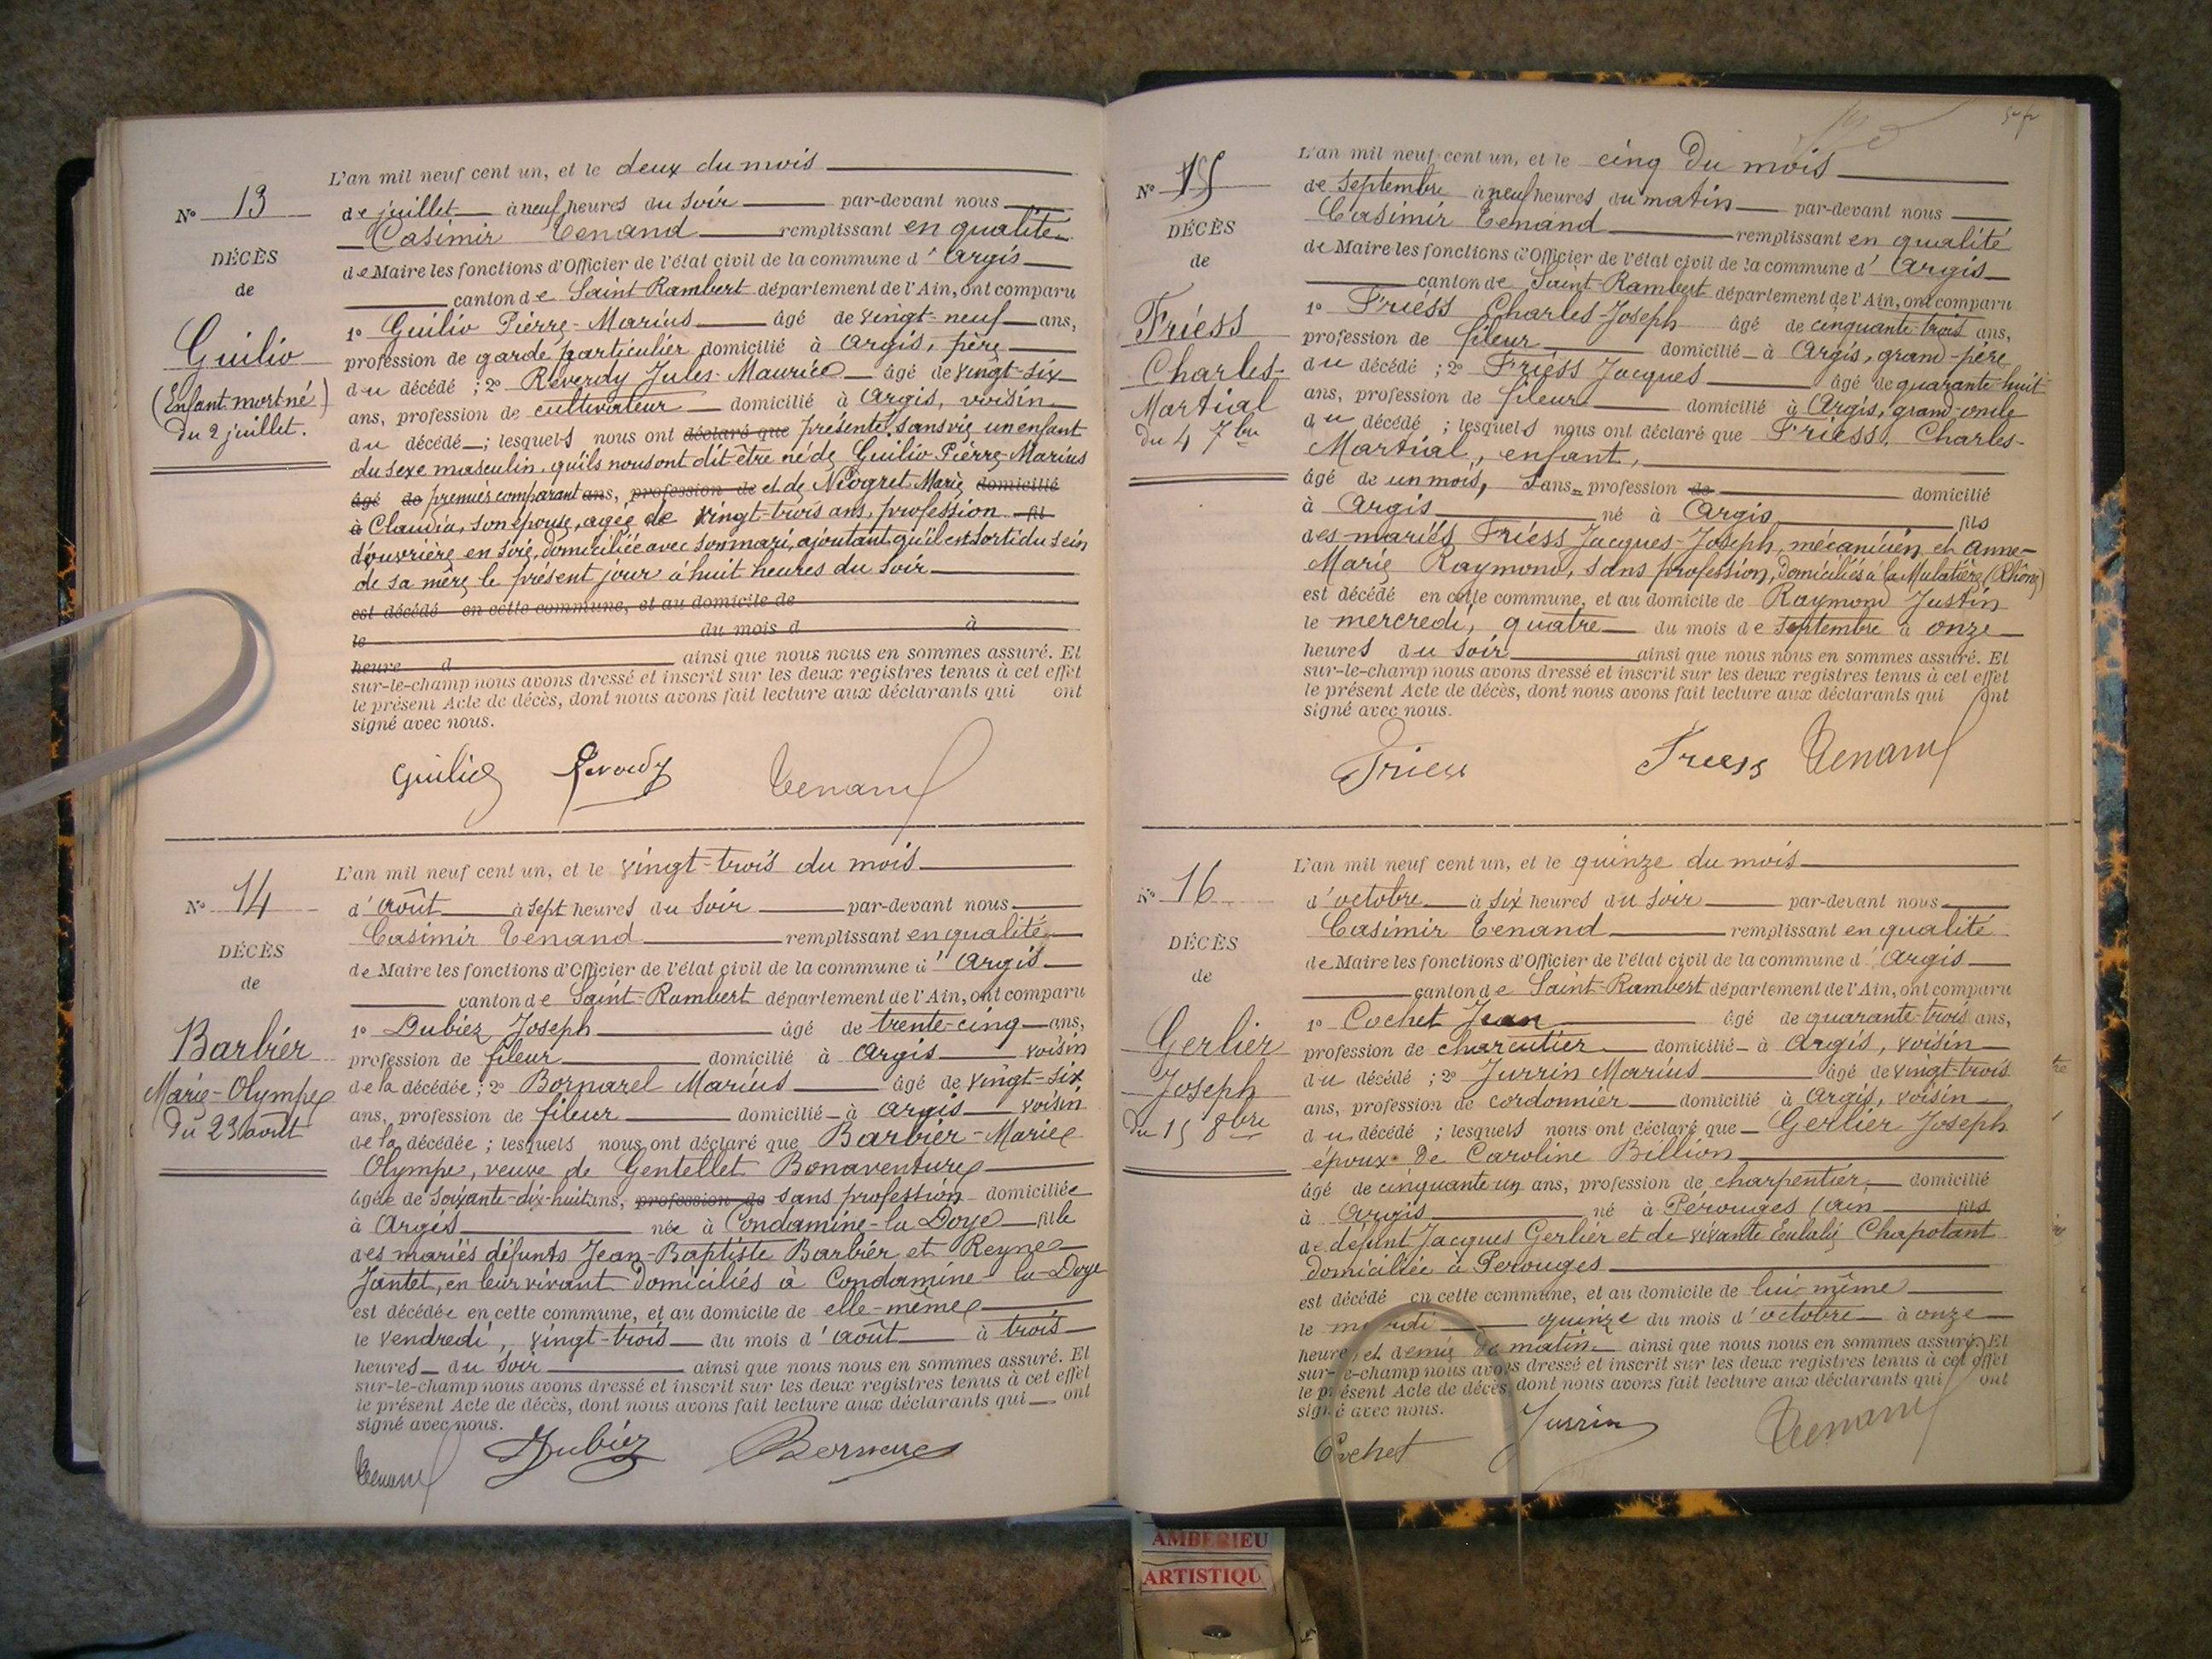 L'an mil neuf cent un, et le deux du mois
N° 13
de juillet à neuf heures du soir par-devant nous
Casimir Tenand remplissant en qualité
DÉCÈS
de Maire les fonctions d'Officier de l'état civil de la commune d'Argis
de
canton de Saint-Rambert département de l'Ain, ont comparu
1° Guilio Pierre-Marius âgé de vingt-neuf ans,
Guilio
profession de garde particulier domicilié à Argis, père
(Enfant mort né)
du décédé ; 2° Reverdy Jules-Maurice âgé de vingt-six
du 2 juillet.
ans, profession de cultivateur domicilié à Argis, voisin
du décédé ; lesquels nous ont déclaré que présenté sans vie un enfant
du sexe masculin, qu'ils nous ont dit être né de Guilio Pierre-Marius
âgé de premier comparant ans, profession de et de Niogret Marie domicilié
à Claudia, son épouse, agée de vingt-trois ans, profession fil
d'ouvrière en soie, domiciliée avec son mari, ajoutant qu'il est sorti du sein
de sa mère le présent jour à huit heures du soir
est décédé en cette commune, et au domicile de
le du mois d à
heure d ainsi que nous nous en sommes assuré. Et
sur-le-champ nous avons dressé et inscrit sur les deux registres tenus à cet effet
le présent Acte de décès, dont nous avons fait lecture aux déclarants qui ont
signé avec nous.
Guilio Reverdy Tenand
L'an mil neuf cent un, et le vingt-trois du mois
N° 14
d'août à sept heures du soir par-devant nous
Casimir Tenand remplissant en qualité
DÉCÈS
de Maire les fonctions d'Officier de l'état civil de la commune d'Argis
de
canton de Saint-Rambert département de l'Ain, ont comparu
1° Dubiez Joseph âgé de trente-cinq ans,
Barbier
profession de fileur domicilié à Argis voisin
Marie-Olympe
de la décédée ; 2° Bornarel Marius âgé de vingt-six
du 23 août
ans, profession de fileur domicilié à Argis voisin
de la décédée ; lesquels nous ont déclaré que Barbier-Marie
Olympe, veuve de Gentellet Bonaventure
âgée de soixante-dix-huit ans, profession de sans profession domiciliée
à Argis née à Condamine-la Doye fille
des mariés défunts Jean-Baptiste Barbier et Reyne
Jantet, en leur vivant domiciliés à Condamine-la-Doye
est décédée en cette commune, et au domicile de elle-même
le vendredi, vingt-trois du mois d'août à trois
heures du soir ainsi que nous nous en sommes assuré. Et
sur-le-champ nous avons dressé et inscrit sur les deux registres tenus à cet effet
le présent Acte de décès, dont nous avons fait lecture aux déclarants qui ont
signé avec nous.
Tenand Dubiez Bornarel
L'an mil neuf cent un, et le cinq du mois
N° 15
de septembre à neuf heures du matin par-devant nous
Casimir Tenand remplissant en qualité
DÉCÈS
de Maire les fonctions d'Officier de l'état civil de la commune d'Argis
de
canton de Saint-Rambert département de l'Ain, ont comparu
1° Friess Charles-Joseph âgé de cinquante-trois ans,
Friess
profession de fileur domicilié à Argis, grand-père
Charles-
du décédé ; 2° Friess Jacques âgé de quarante-huit
Martial
ans, profession de fileur domicilié à Argis, grand-oncle
du 4 7bre
du décédé ; lesquels nous ont déclaré que Friess, Charles-
Martial, enfant,
âgé de un mois, sans profession de domicilié
à Argis né à Argis fils
des mariés Friess Jacques-Joseph, mécanicien et Anne-
Marie Raymond, sans profession, domiciliés à la Mulatière (Rhône)
est décédé en cette commune, et au domicile de Raymond Justin
le mercredi, quatre du mois de septembre à onze
heures du soir ainsi que nous nous en sommes assuré. Et
sur-le-champ nous avons dressé et inscrit sur les deux registres tenus à cet effet
le présent Acte de décès, dont nous avons fait lecture aux déclarants qui ont
signé avec nous.
Friess Friess Tenand
L'an mil neuf cent un, et le quinze du mois
N° 16
d'octobre à six heures du soir par-devant nous
Casimir Tenand remplissant en qualité
DÉCÈS
de Maire les fonctions d'Officier de l'état civil de la commune d'Argis
de
canton de Saint-Rambert département de l'Ain, ont comparu
1° Cochet Jean âgé de quarante-trois ans,
Gerlier
profession de charcutier domicilié à Argis, voisin
Joseph
du décédé ; 2° Jurrin Marius âgé de vingt-trois
ans, profession de cordonnier domicilié à Argis, voisin
du 15 8bre
du décédé ; lesquels nous ont déclaré que Gerlier Joseph
époux de Caroline Billion
âgé de cinquante un ans, profession de charpentier domicilié
à Argis né à Pérouges (ain fils
de défunt Jacques Gerlier et de vivante Eulalie Chapotant
domiciliée à Perouges
est décédé en cette commune, et au domicile de lui-même
le mardi quinze du mois d'octobre à onze
heure, et demie du matin ainsi que nous nous en sommes assuré. Et
sur-le-champ nous avons dressé et inscrit sur les deux registres tenus à cet effet
le présent Acte de décès, dont nous avons fait lecture aux déclarants qui ont
signé avec nous.
Cochet Jurrin Tenand
AMBERIEU
ARTISTIQU